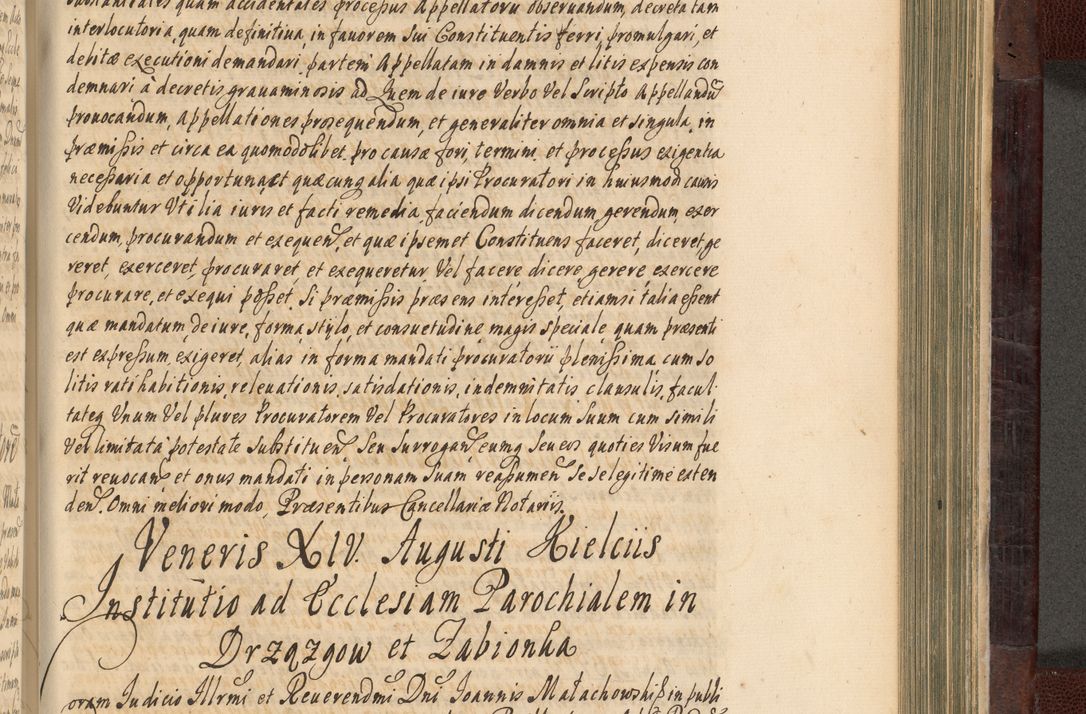 substantiales quam accidentales processus Appellatoru observandum, decreta tam
interlocutoria, quam definitiua in fauorem sui Constituentis ferri, promulgari, et
debitæ executioni demandari, partem Appellatam in damnis et litis expensis con
demnari à decretis grauaminosis ad Quem de iure Verbo Vel Scripto Appellandũ
prouocandum, Appellationes prosequendum, et generaliter omnia et singula, in
præmissis et circa ea quomodolibet pro causæ fori, termini et processus exigentia
necessaria et opportuna, et quæcunq alia quæ ipsi Procuratori in huiusmodi causis
Videbuntur Vtilia iuris et facti remedia, faciendum dicendum, gerendum, exer
cendum, procurandum et exequen, et quæ ipsemet Constituens faceret, diceret, ge
reret, exerceret, procuraret, et exequeretur Vel facere dicere, gerere, exercere
procurare, et exequi posset, si præmissis præsens interesset, etiamsi talia essent
quæ mandatum de iure, forma, stylo, et consuetudine magis speciale, quam præsenti
est expressum, exigeret, alias in forma mandati procuratorii plenissima, cum so
litis rati habitionis, releuationis, satisdationis, indemnitatis clausulis, facul
tateq Vnum Vel plures Procuratorem Vel Procuratores in locum suum cum simili
Vel limitata potestate substituen, seu surrogan, eumq seu eos quoties Visum fue
rit reuocan, et onus mandati in personam suam reassumen, se se legitime exten
den. Omni meliori modo, Præsentibus Cancellariæ Notariis.
Veneris XIV. Augusti Kielciis
Institutio ad Ecclesiam Parochialem in
Drzązgow et Zabionka
oram Iudicio Illrmi et Reuerendmi Dni Ioannis Małachowski in publi